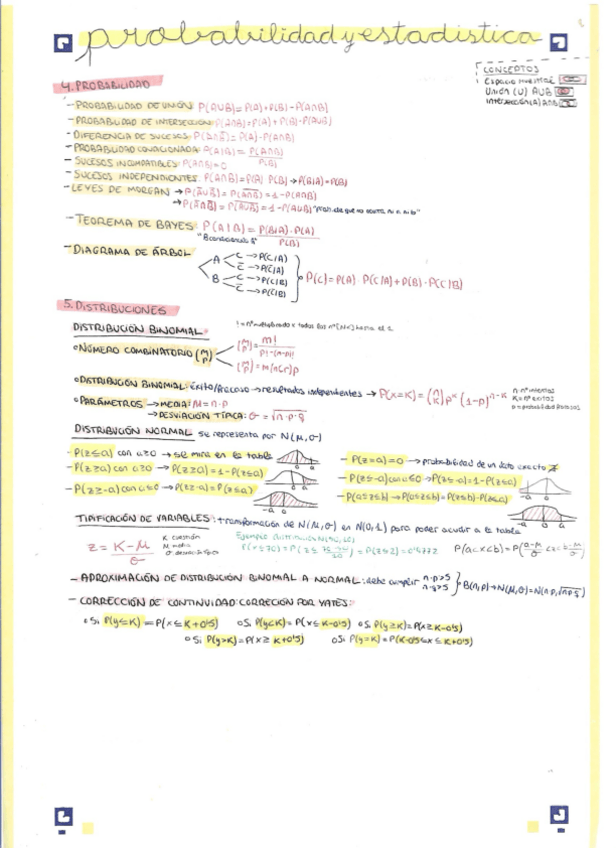 probabilidad y estadistica
CONCEPTOS
Espacio muestral
Unión (U) AUB
Intersección(∩) A∩B
4. PROBABILIDAD
- PROBABILIDAD DE UNIÓN: P(AUB) = P(A)+P(B)-P(A∩B)
- PROBABILIDAD DE INTERSECCIÓN: P(A∩B)=P(A)+P(B)-P(AUB)
- DIFERENCIA DE SUCESOS: P(A∩B̅)= P(A)-P(A∩B)
- PROBABILIDAD CONDICIONADA: P(A|B) = P(A∩B)/P(B)
- SUCESOS INCOMPATIBLES: P(A∩B)=0
- SUCESOS INDEPENDIENTES: P(A∩B)=P(A)·P(B) → P(B|A)=P(B)
- LEYES DE MORGAN → P(A̅UB̅) = P(A̅∩̅B̅) = 1-P(A∩B)
→ P(A̅∩B̅) = P(A̅U̅B̅) = 1-P(AUB)
- TEOREMA DE BAYES P(A|B) = P(B|A)·P(A)/P(B)
- DIAGRAMA DE ÁRBOL
A C → P(C/A)
C̅ → P(C̅/A)
B C → P(C/B)
C̅ → P(C̅/B)
P(C)=P(A)·P(C/A)+P(B)·P(C/B)
5. DISTRIBUCIONES
DISTRIBUCIÓN BINOMIAL:
NÚMERO COMBINATORIO (m p)
(m p) = m!/p!·(m-p)!
(m p) = m(nCr)p
DISTRIBUCIÓN BINOMIAL: éxito/fracaso → resultados independientes → P(X=K) = (n K) p^K (1-p)^n-K
n = nº intentos
K = nº éxitos
PARÁMETROS → MEDIA: M = n·p
→ DESVIACIÓN TÍPICA: σ = √n·p·q
DISTRIBUCIÓN NORMAL se representa por N(M,σ)
- P(z≤a) con a≥0 → se mira en la tabla
- P(z=a)=0 → probabilidad de un dato exacto
- P(z≥a) con a≥0 → P(z≥a)=1-P(z≤a)
- P(z≤-a) con a≤0 → P(z≤-a)=1-P(z≤a)
- P(z≥-a) con a≤0 → P(z≥-a)=P(z≤a)
- P(a≤z≤b) → P(a≤z≤b)=P(z≤b)-P(z≤a)
TIPIFICACIÓN DE VARIABLES: transformación de N(M,σ) en N(0,1) para poder acudir a la tabla
z = K-M/σ
K cuestión
M media
P(a<x<b) = P(a-M/σ <z< b-M/σ)
- APROXIMACIÓN DE DISTRIBUCIÓN BINOMIAL A NORMAL: debe cumplir n·p>5 n·q>5 } B(n,p)→N(M,σ)=N(n·p,√n·p·q)
- CORRECCIÓN DE CONTINUIDAD CORRECIÓN POR YATES:
Si P(y≤K) = P(x≤K+0'5) Si P(y<K)=P(x≤K-0'5) Si P(y≥K)=P(x≥K-0'5)
Si P(y>K)=P(x≥K+0'5) Si P(y=K)=P(K-0'5≤x≤K+0'5)